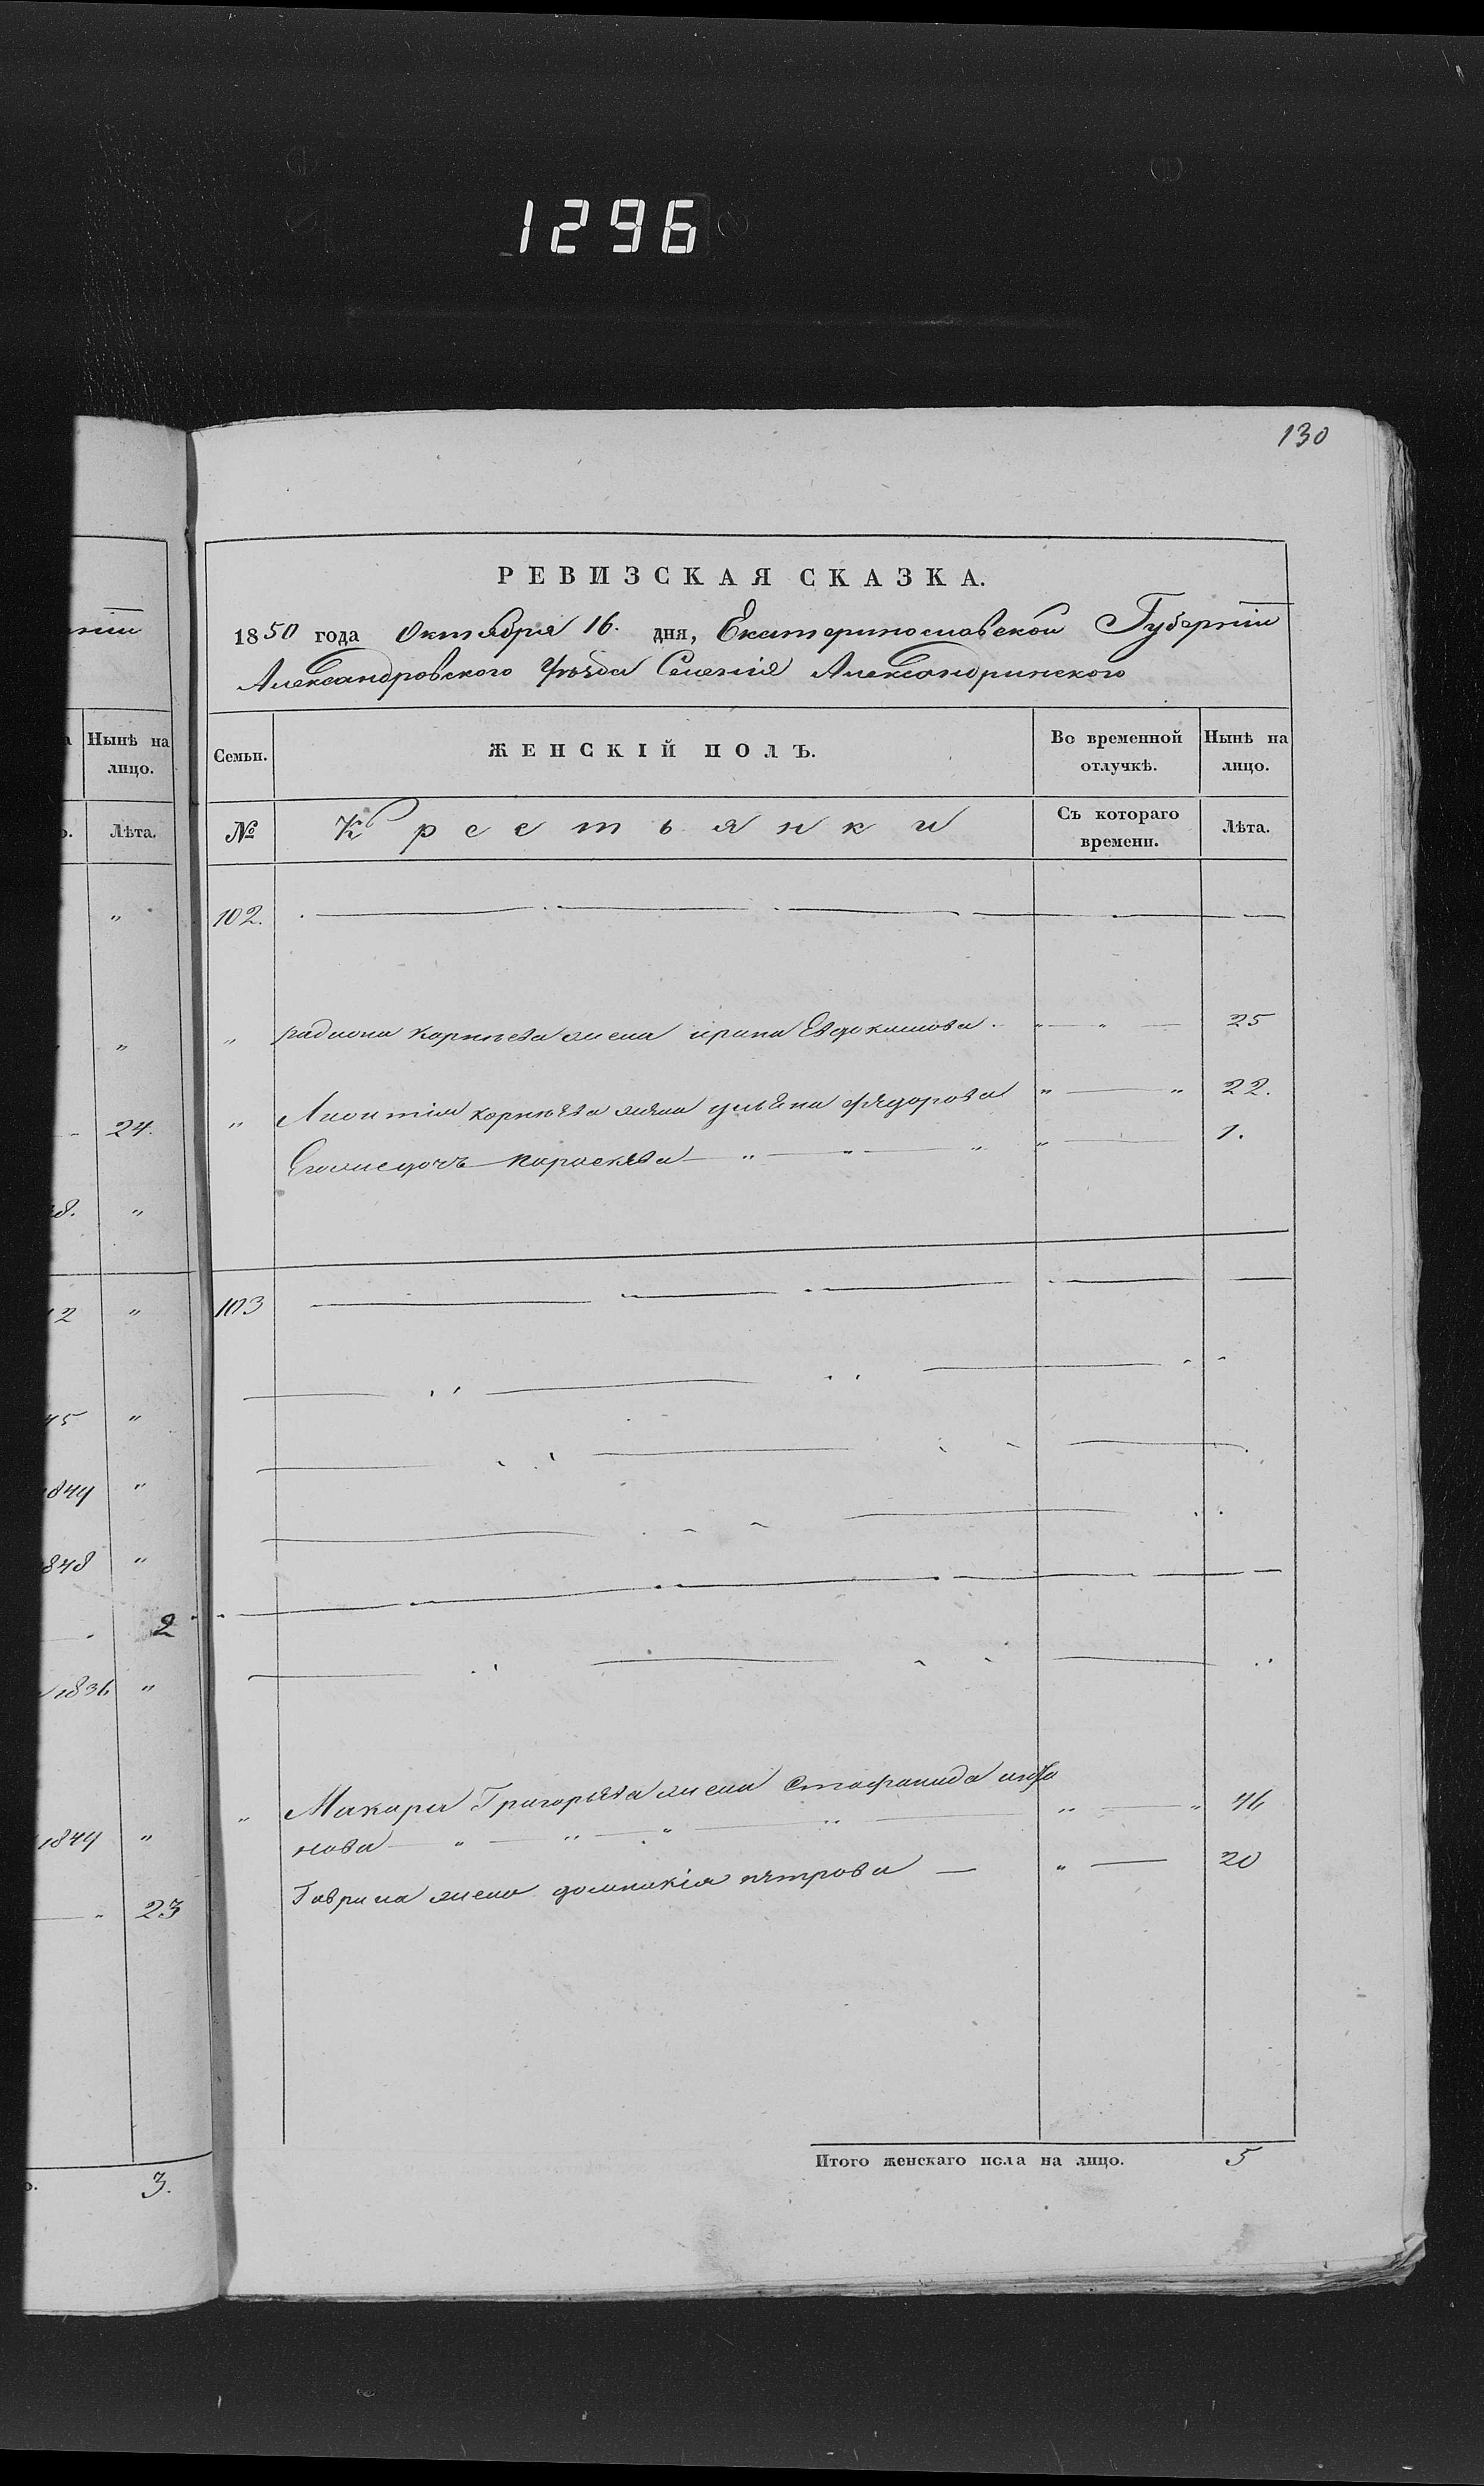 1296
130
РЕВИЗСКАЯ СКАЗКА.
1850 года Октября 16. дня, Екатеринославской Губерніи
Александровского Уѣзда Селенія Александринского
Нынѣ на лицо.
Семьи. ЖЕНСКІЙ ПОЛЪ. Во временной отлучкѣ. Нынѣ на лицо.
Лѣта.
№ Крестьянки Съ котораго времени. Лѣта.
"
102.
"
" радиона Корнѣева жена ирина Евдокимова " " 25
24.
" Лионтія корнѣева жена ульяна фядорова " " 22.
Еголиедочь Параскева " " " " 1.
8. "
12 " 103
45 "
1849 "
1848 "
2
1836 "
" Макара Григорьева жена Стефанида " " 46
1849 "
нова " " " "
Гаврила жена домникія пѣтрова " 20
23
Итого женскаго пола на лицо. 5
3.